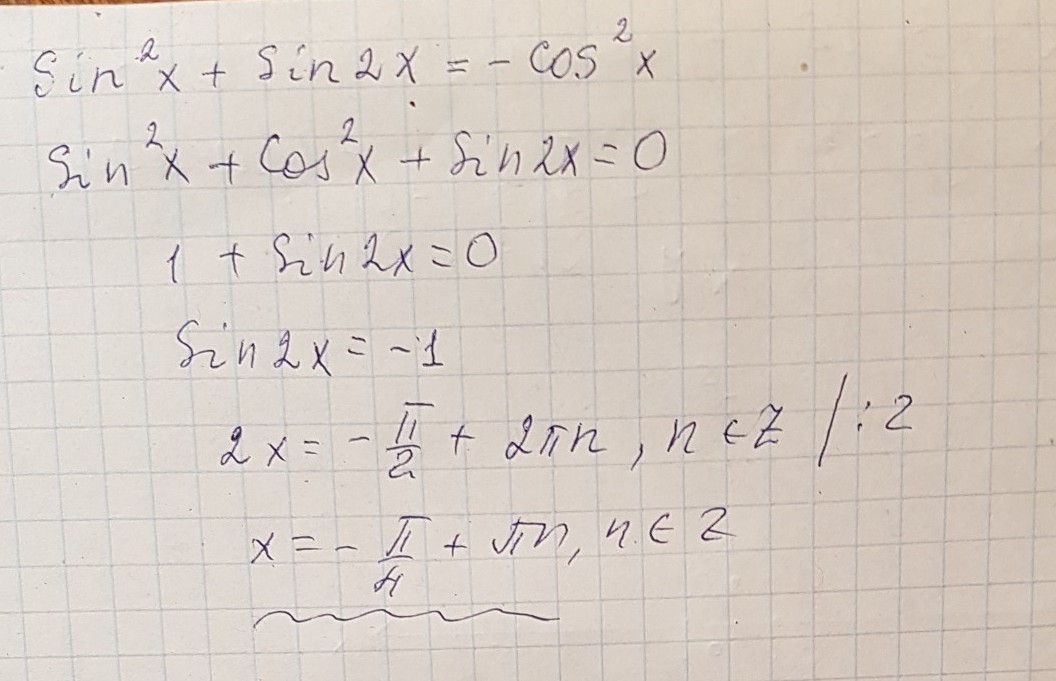 Sin²x + Sin2x = -cos²x
Sin²x + Cos²x + Sin2x = 0
1 + Sin2x = 0
Sin2x = -1
2x = -π/2 + 2πn, n ∈ Z /:2
x = -π/4 + πn, n ∈ Z